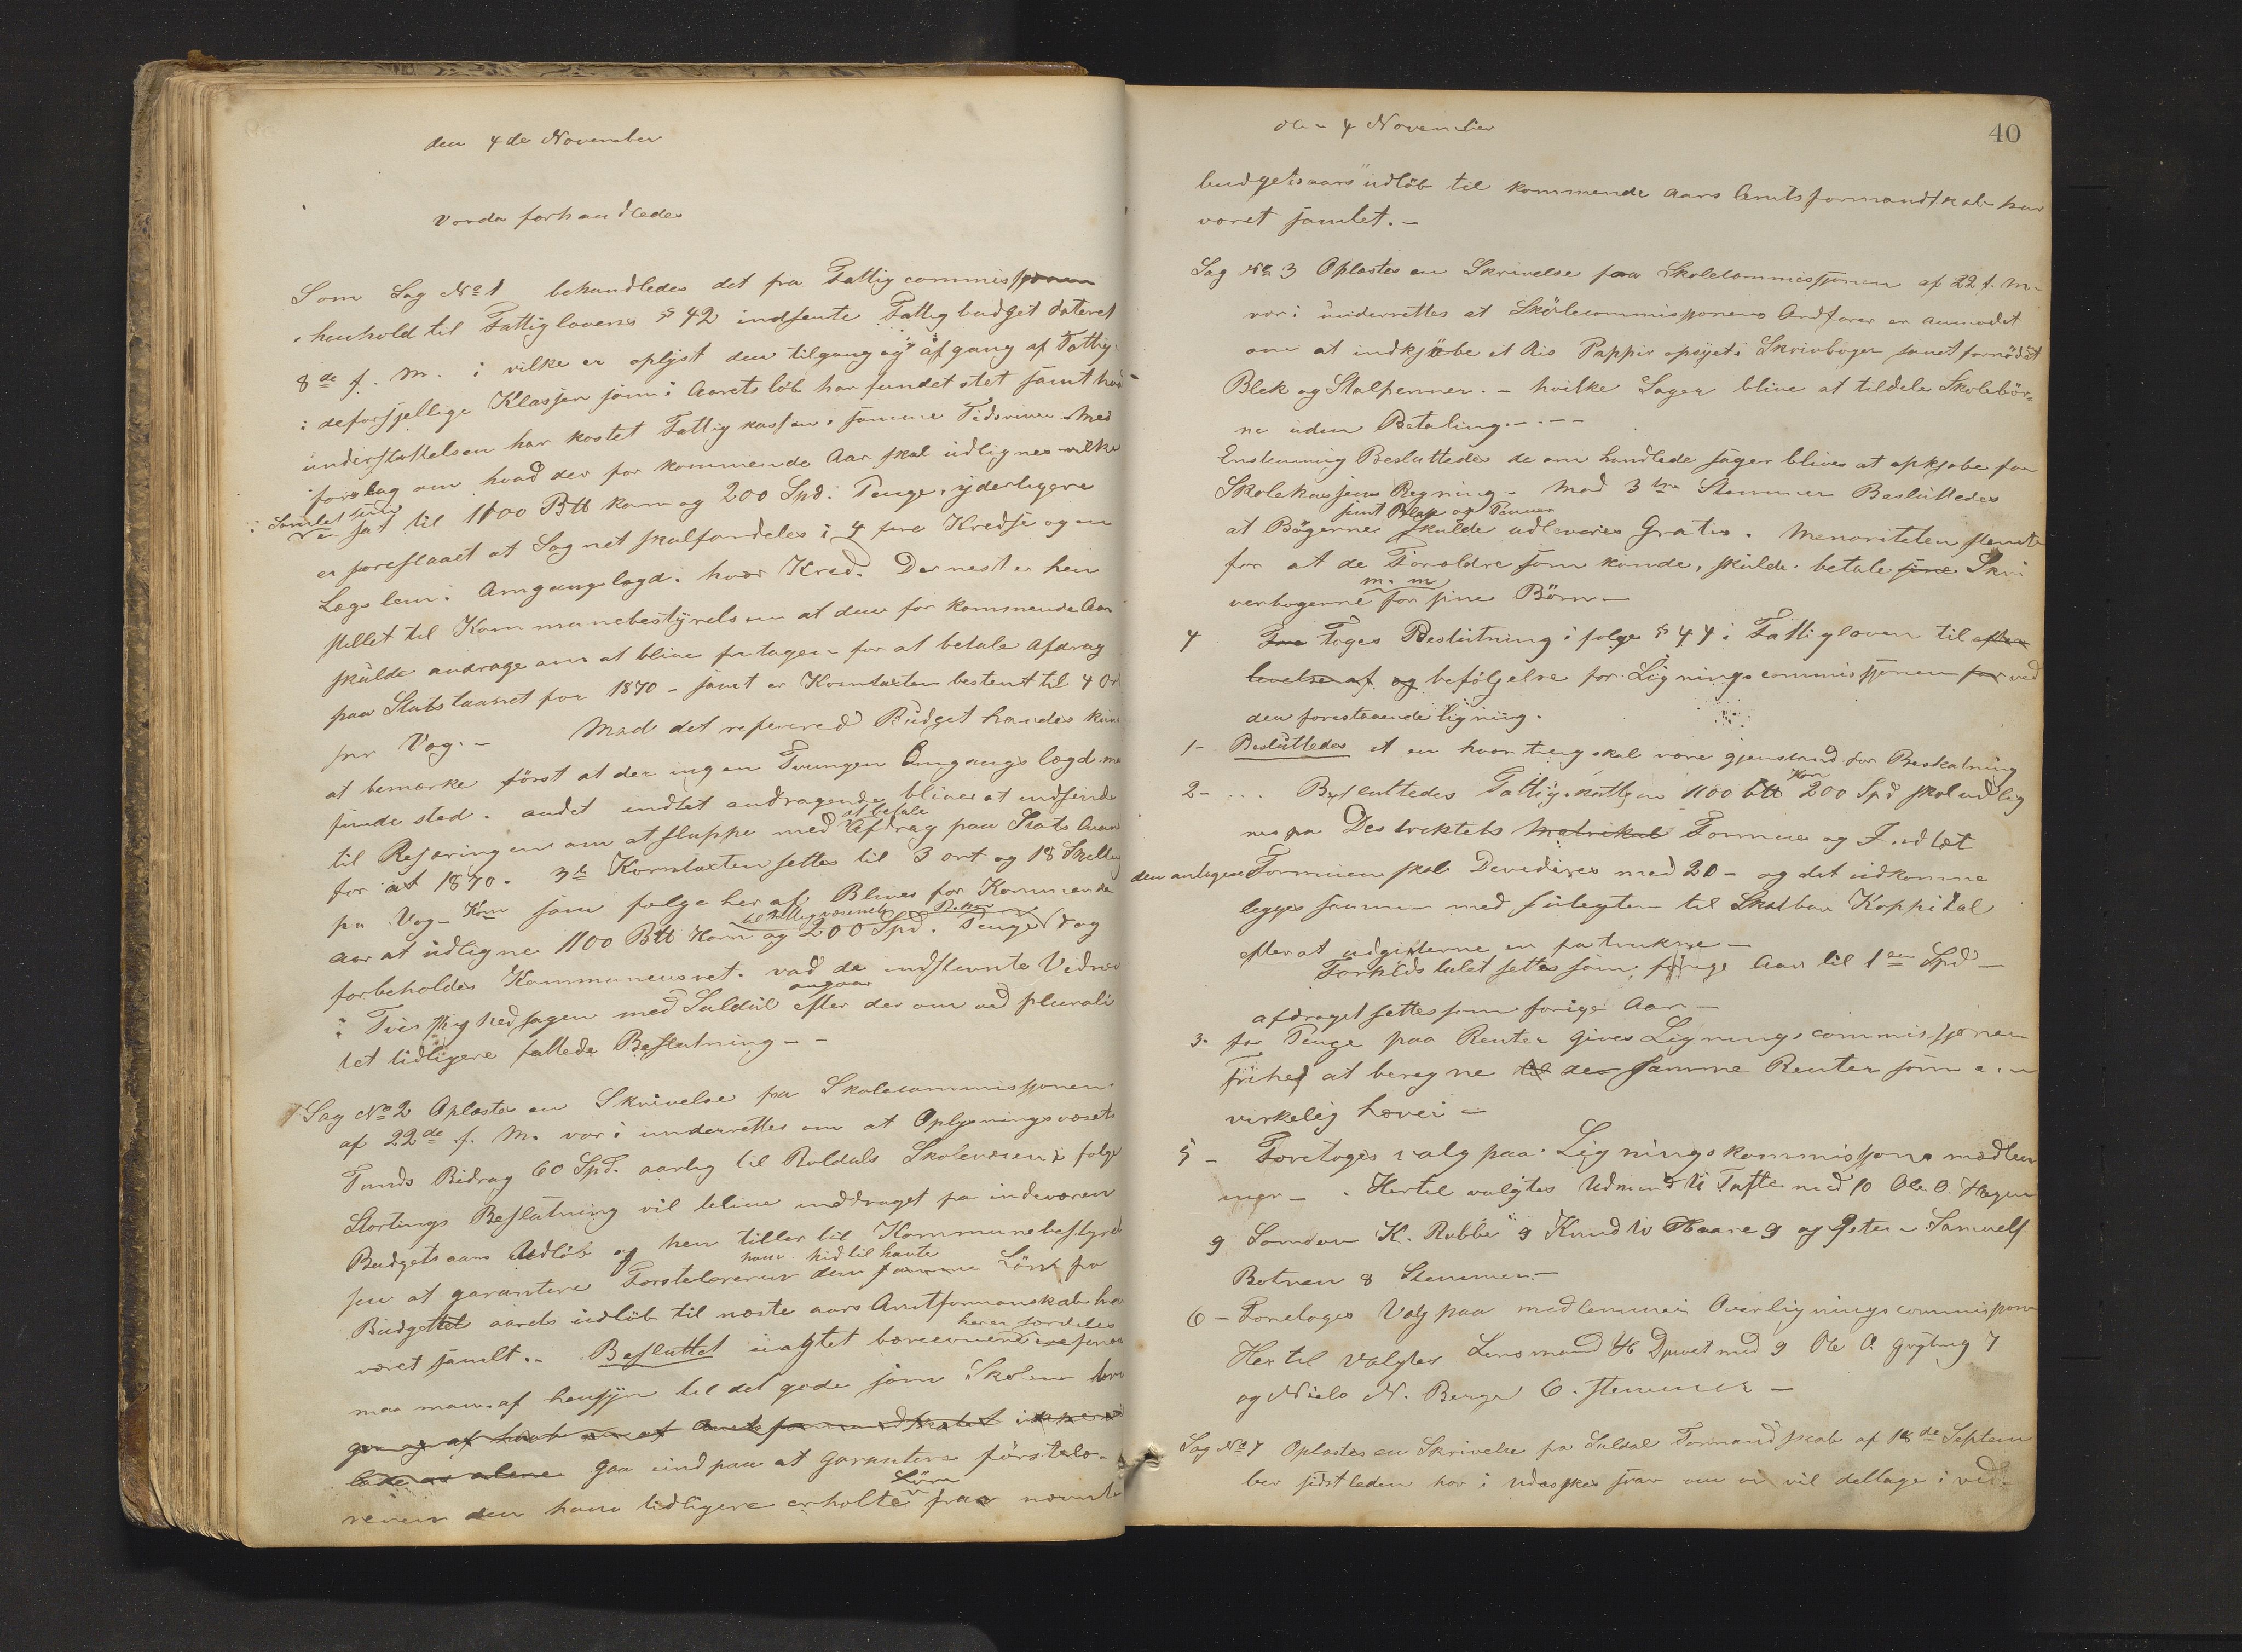 den 4de November
Vorda forhandledes
Som Sag No 1 behandledes det fra Fattigcommissjonen
i henhold til Fattiglovens § 42 indsente Fattigbudget dateret
8de f. M. i vilke er oplyst den tilgang og afgang af Fattige
i deforsjellige Klasser som i Aarets løb har fundet sted samt hvad
understøttelsen har kostet Fattigkassen i samme Tidsrum Med
forslag om hvad der for kommende Aar skal udlignes vilke
i Samlet sum
er sat til 1100 Btt korn og 200 Spd. Penge. yderligere
er foreslaaet at Sognet skal fordeles i 4 fire Kredse og en
Lægslem i Amgangslægd i hvor Kred. Dernest er hen
stillet til Kommunebestyrelsen at den for kommende Aar
skulde andrage om at blive fritagen for at betale afdrag
paa Statslaanet for 1870 - samt er Korntaxten bestemt til 4 Ort
pr Vog. - Mod det refererede Budget havdes kun
at bemærke først at der ingen Tvungen Omgangs lægd maa
finde sted. andet indtet andragende bliver at indsende
at betale
til Regjæringen om at sluppe med Afdrag paa Stats Laan
for at 1870. 3de Korntaxten settes til 3 ort og 18 Skilling
pr Vog - Korn som følge her af Blives for Kommende
til Fattigvæsenets
aar at udligne 1100 Btt Korn og 200 Spd. Penge og
forbeholdes Kommunens ret. vad de indstevnte Vidner
angaar
i Tvistighedsagen med Suldal efter der om ved plurali
tet tidligere fattede Beslutning - -
Sag No 2 Oplæstes en Skrivelse fra Skolecommissjonen
af 22de f. M. vor i underrettes om at Oplysningsvæsets
Funds Bidrag 60 Spd. aarlig til Røldals Skolevæsen i følge
Stortings Beslutning vil blive inddraget fra indeværen
Budgetsaars Udløb og hen tiller til Kommunebestyrel
ham hid til havte
sen at garantere Førstelæreren den samme Løn fra
Budgettet aards udløb til næste aars Amtformanskab har
været samlt. - Besluttet uagtet bæreevnene
her er særdeles
maa man af hensyn til det gode som Skolen
gen og af haab om at Amtsformandskabet ikke
lade os alene gaa ind paa at garantere førstelæ-
Løn
reren den ham tidligere erholte fra nævnte
den 4 November
40
budgetsaars udløb til kommende aars Amtsformandskab har
været samlet. -
Sag No 3 Oplæstes en Skrivelse fra Skolecommissjonen af 22 f. M.
vor i underrettes at Skolecommissjonens Ordfører er anmodet
om at indkjøbe et Ris Pappir opsyet i Skrivbøger samt fornødent
Blek og Stalpenner. - hvilke Sager blive at tildele Skolebør-
ne uden Betaling. - - -
Enstemmig Besluttedes de om handlede sager blives at opkjøbe for
Skolekassens Regning. Mod 3 tre Stemmer Besluttedes
samt Blæk og Penner
at Bøgerne skulde udleveres Gratis. Menoriteten stemte
for at de Foreldre som kunde, skulde betale sine Skri
m. m
verbøgerne for sine Børn -
4 Fore Toges Beslutning i følge § 44 i Fattigloven til efter
levelse af og befølgelse for Ligningscommissjonen for ved
den forestaaende ligning.
1- Besluttedes at en hvor ting skal være gjenstand for Beskatning
Korn
2- ... Besluttedes Fattigskatten 1100 btt 200 Spd skal udlig
nes paa Destriktets Matrikul Formue og Indtæt
den antagne Formuen skal Devideres med 20 - og det udkomne
legges sammen med integten til Skatbar Kappital
efter at udgifterne er fratrukne -
Forholds talet settes som forige Aar til 1 en Spd -
afdraget settes som forige Aar -
3- for Penge paa Renter gives Ligningscommissjonen
Frihed at beregne til de samme Renter som
virkelig hæver -
5 - Foretoges valg paa Ligningskommissjons medlem
mer - . Hertil valgtes Udmund U Tufte med 10 Ole O. Hagen
9 Samson K. Rabbe 9 Knud W Haare 9 og Østen Samuels.
Botnen 8 Stemmer. -
6 - Foretoges Valg paa medlemmer i Overligningscommissjonen
Her til valgtes Lensmand H Djuvet med 9 Ole O. Gryting 7
og Niels N. Berge 6. stemmer -
Sag No 7 Oplæstes en Skrivelse fra Suldal Formandskab af 18de Septem
ber sidstleden hor i udæskes svar om vi vil deltage i ved-